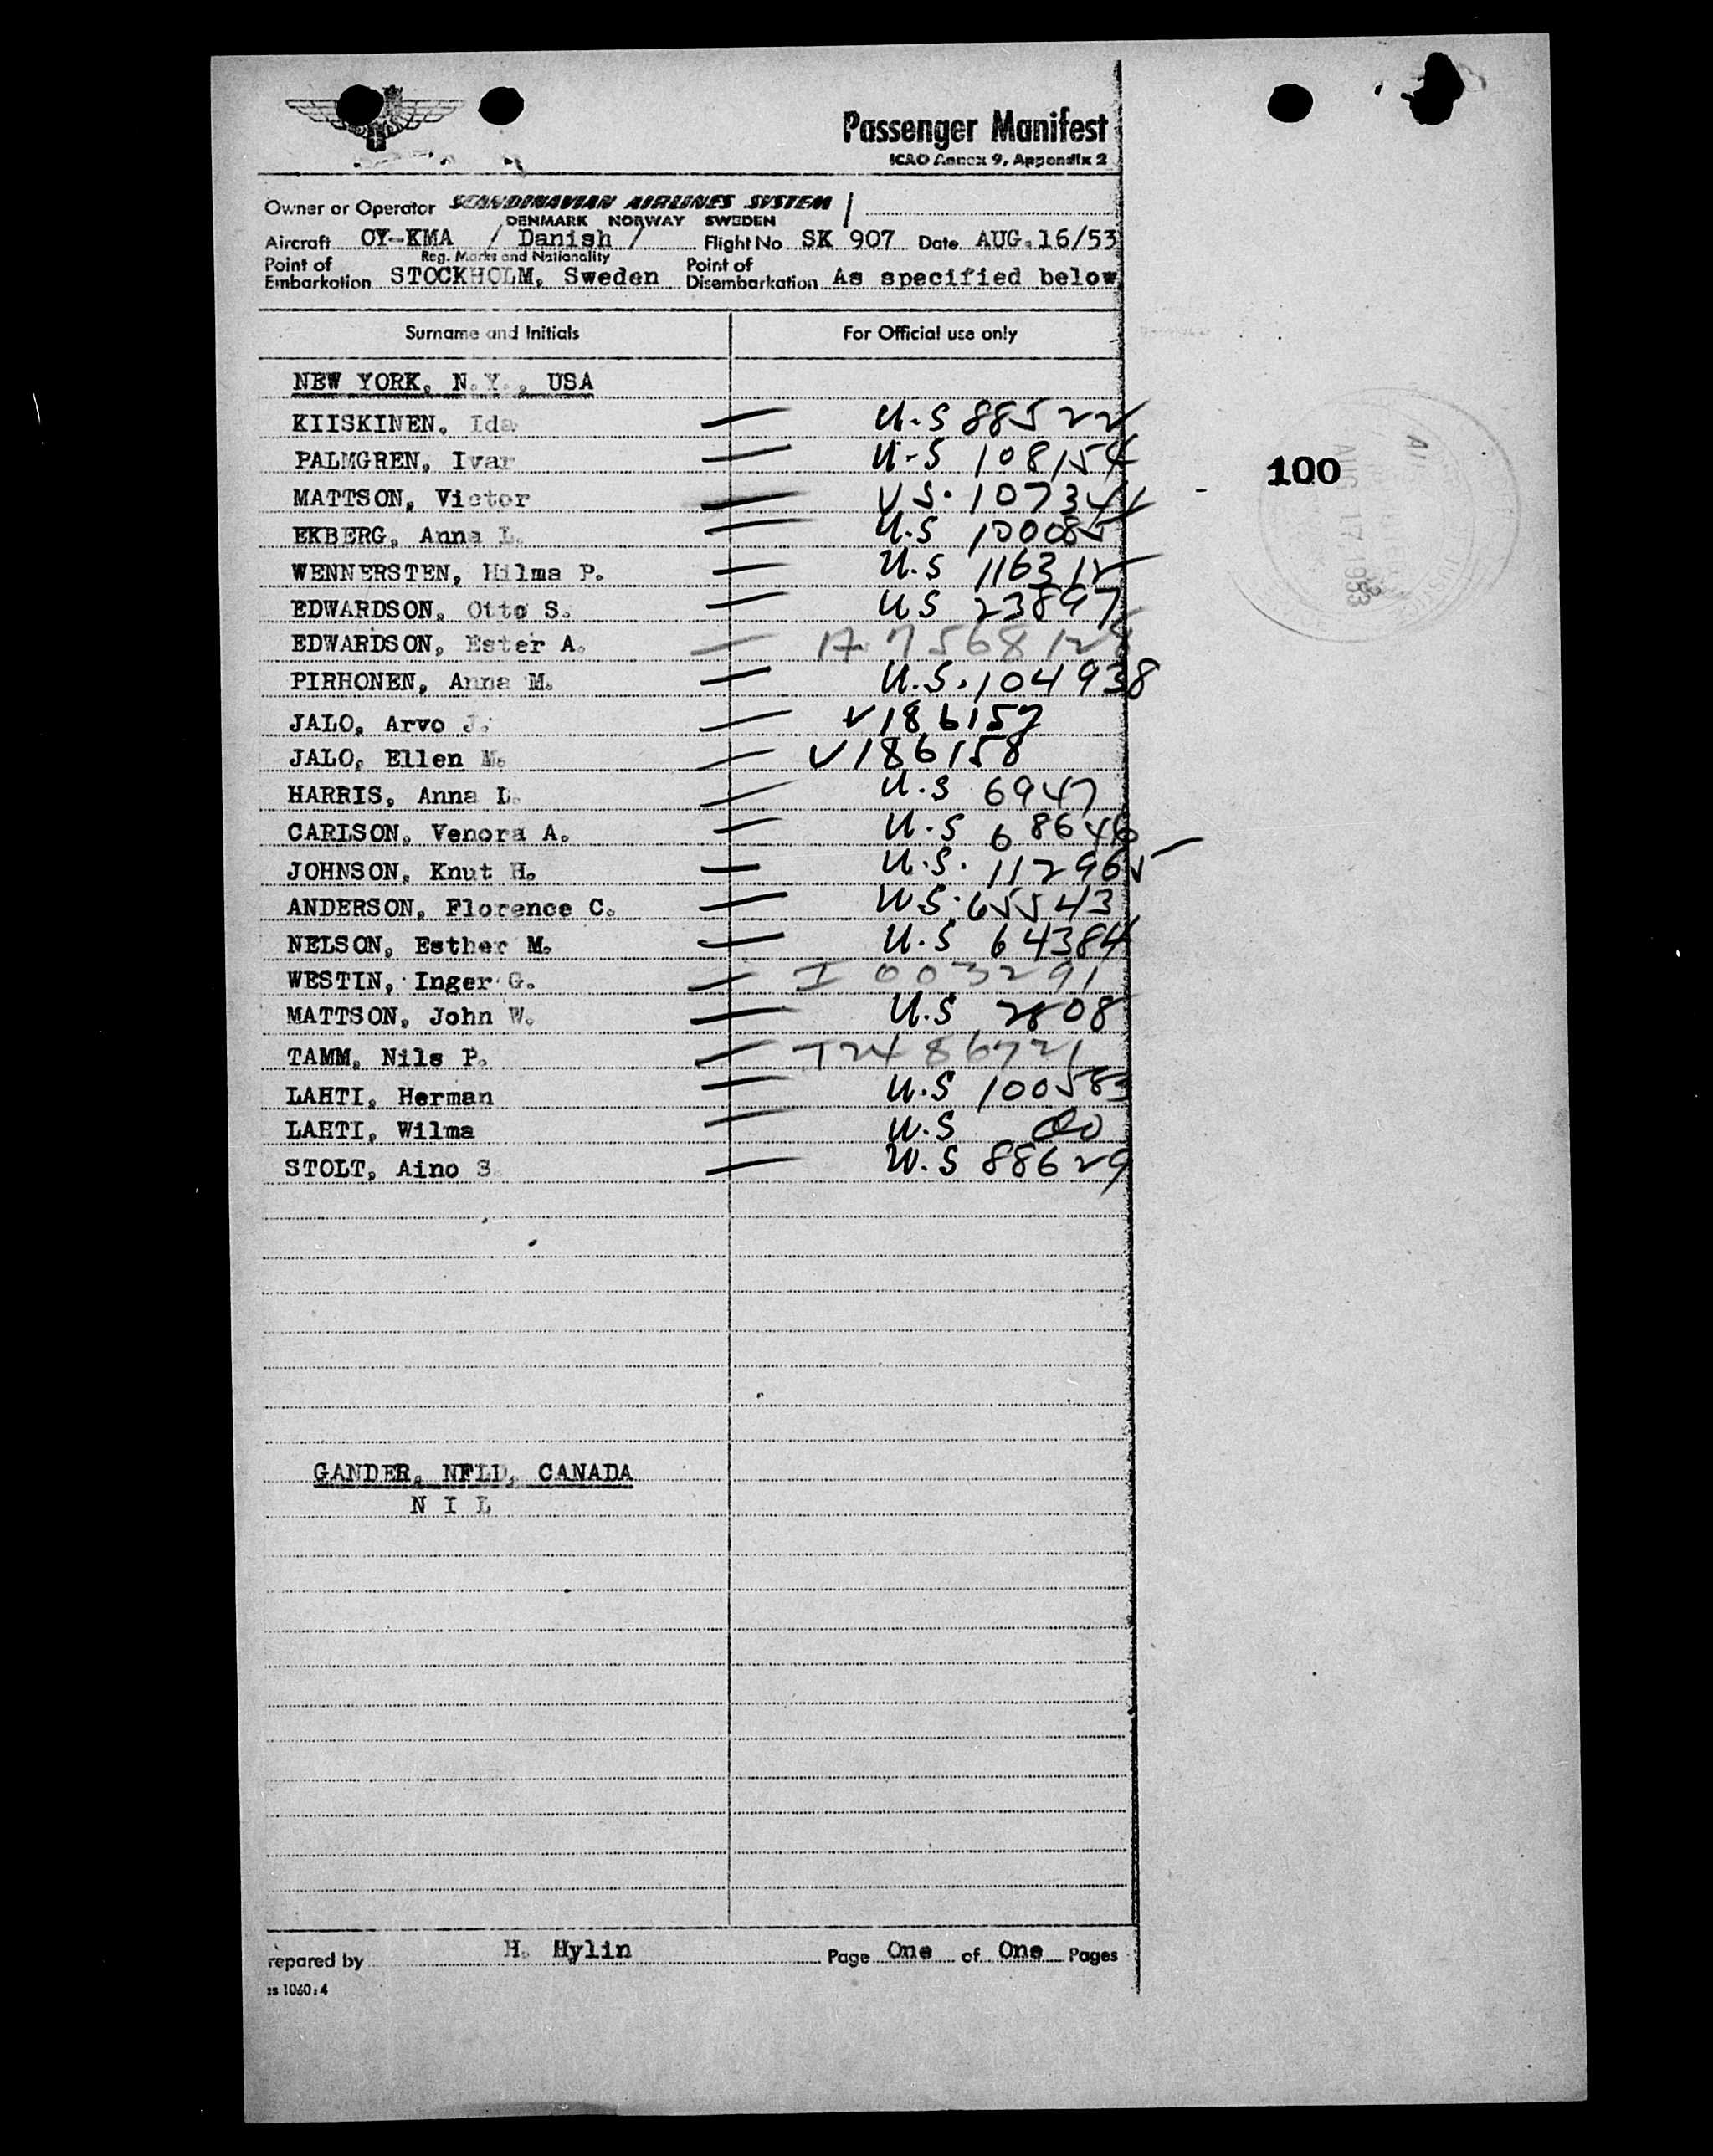 Passenger Manifest
ICAO Annex 9, Appendix 2
Owner or Operator SCANDINAVIAN AIRLINES SYSTEM
DENMARK NORWAY SWEDEN
Aircraft OY-KMA / Danish / Flight No SK 907 Date AUG. 16/53
Reg. Marks and Nationality
Point of Embarkation STOCKHOLM, Sweden Point of Disembarkation As specified below
Surname and Initials For Official use only
NEW YORK, N.Y., USA
KIISKINEN, Ida U.S 88522
PALMGREN, Ivar U-S 108154
100
MATTSON, Victor U S. 107344
EKBERG, Anna L. U.S 100085
WENNERSTEN, Hilma P. U.S 116312
EDWARDSON, Otto S. U S 23897
EDWARDSON, Ester A. A 7568128
PIRHONEN, Anna M. U.S. 104938
JALO, Arvo J. V186157
JALO, Ellen M. V186158
HARRIS, Anna L. U.S 6947
CARLSON, Venora A. U.S 68646
JOHNSON, Knut H. U.S. 112965
ANDERSON, Florence C. U S. 65543
NELSON, Esther M. U.S 64384
WESTIN, Inger G. I 003291
MATTSON, John W. U.S 2808
TAMM, Nils P. T2486721
LAHTI, Herman U.S 100583
LAHTI, Wilma U.S Do
STOLT, Aino S U.S 88629
AUG 17 1953
GANDER, NFLD, CANADA
N I L
repared by H. Hylin Page One of One Pages
1060:4